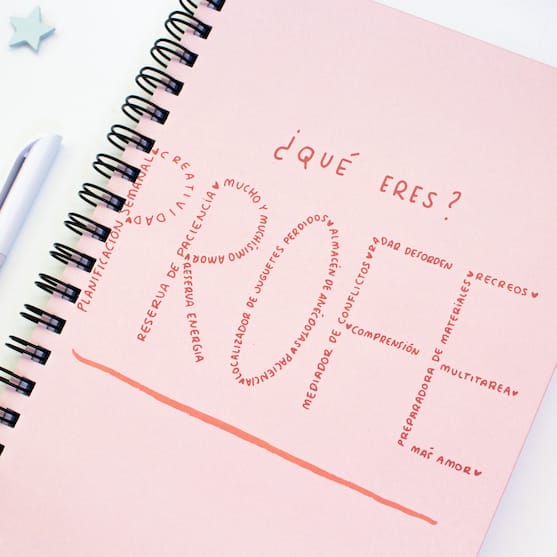 ¿QUÉ ERES?
PLANIFICACIÓN SEMANAL♥
CREATIVIDAD♥
RESERVA DE PACIENCIA♥
MUCHO Y MUCHÍSIMO AMOR♥
RESERVA ENERGÍA
LOCALIZADOR DE JUGUETES PERDIDOS♥
ALMACÉN DE ANÉCDOTAS♥
PACIENCIA♥
MEDIADOR DE CONFLICTOS♥
DAR DE
COMPRENSIÓN
PREPARADORA DE MATERIALES♥
RECREOS♥
MULTITAREA♥
MÁS AMOR♥